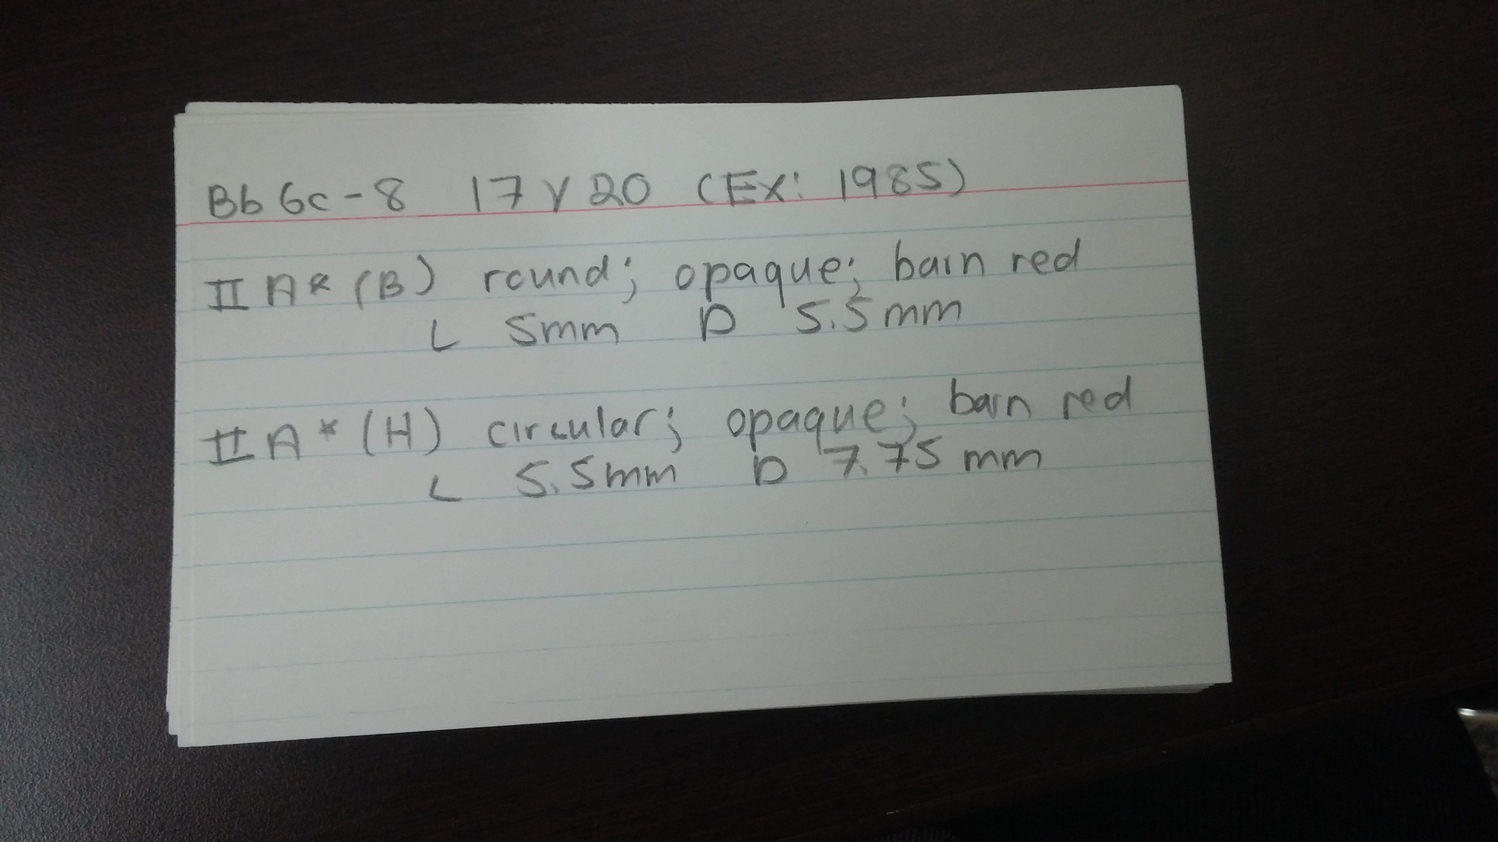 Bb Gc-8 17 Y 20 (Ex: 1985)
II A* (B) round; opaque; barn red
L 5mm D 5.5mm
II A* (H) circular; opaque; barn red
L 5.5mm D 7.75mm